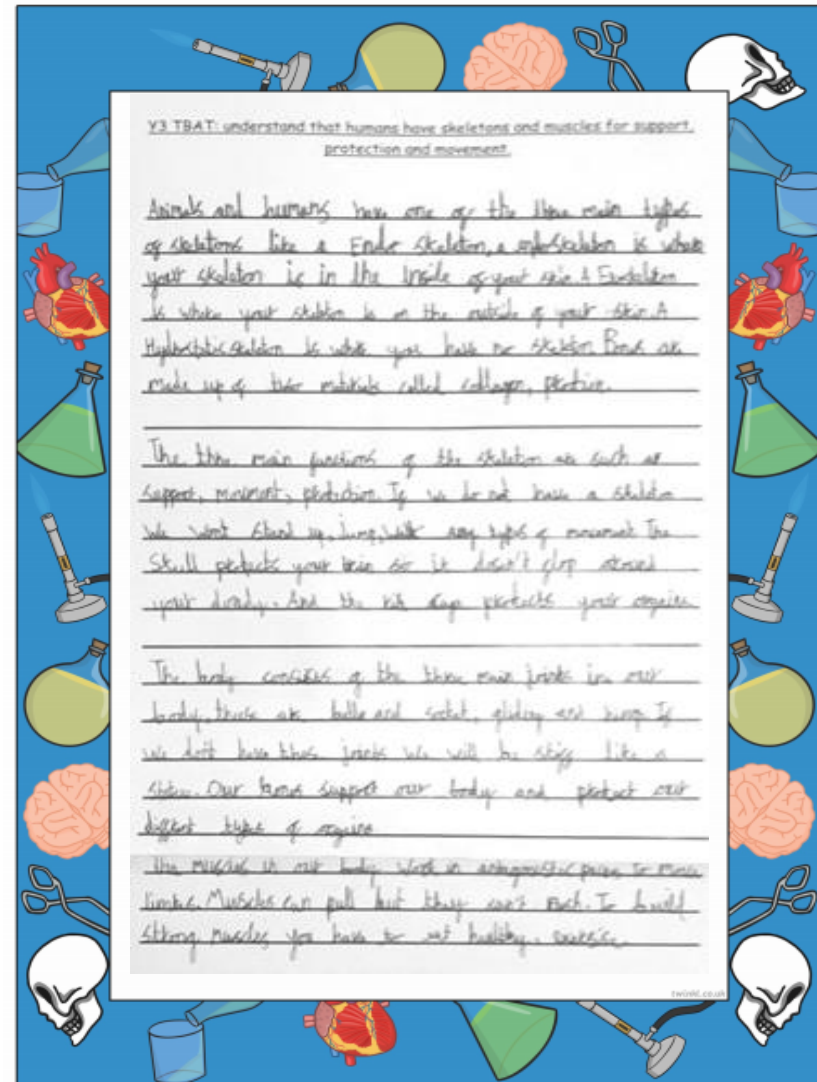 Y3 TBAT: understand that humans have skeletons and muscles for support,
protection and movement.
Animals and humans have one of the three main types
of skeletons like a Endo skeleton, a endoskeleton is where
your skeleton is in the inside of your skin. A Exoskeleton
is where your skeleton is on the outside of your skin. A
Hydrostatic skeleton is where you have no skeleton. Bones are
made up of two materials called collagen,
The three main functions of the skeleton are such as
support, movment, protection. If we do not have a skeleton
we wont stand up, jump, walk any types of movement. The
Skull protects your brain so it doesn't flop around
your . And the rib cage protects your
The body consists of the three main joints in our
body, these are and socket, gliding and If
we don't have these joints we will be stiff like a
. Our bones support our body and protect our
types of
The muscles in our body work in antagonistic to move
limbs. Muscles can pull but they can't push. To build
strong muscles you have to eat healthy,
twinkl.co.uk